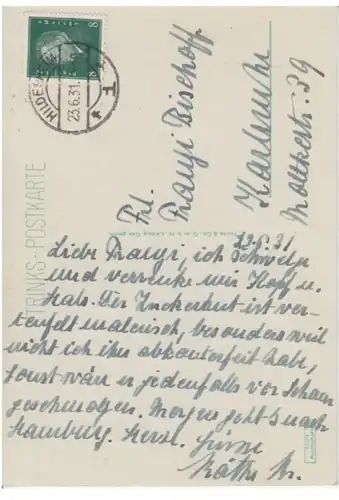 HILDESHEIM
23.6.31.
8
8
TRINKS-POSTKARTE
Frl.
Franzi Bischoff
Karlsruhe
Moltkestr. 39
22.6.31
Liebe Franzi, ich schwelge
und verrenke mir Kopf u.
Hals. Der Zuckerhut ist ver-
teufelt malerisch, besonders weil
nicht ich ihn abkonterfeit hab,
sonst wär er jedenfalls vor Scham
geschmolzen. Morgen geht's nach
Hamburg. Herzl.
Käthe